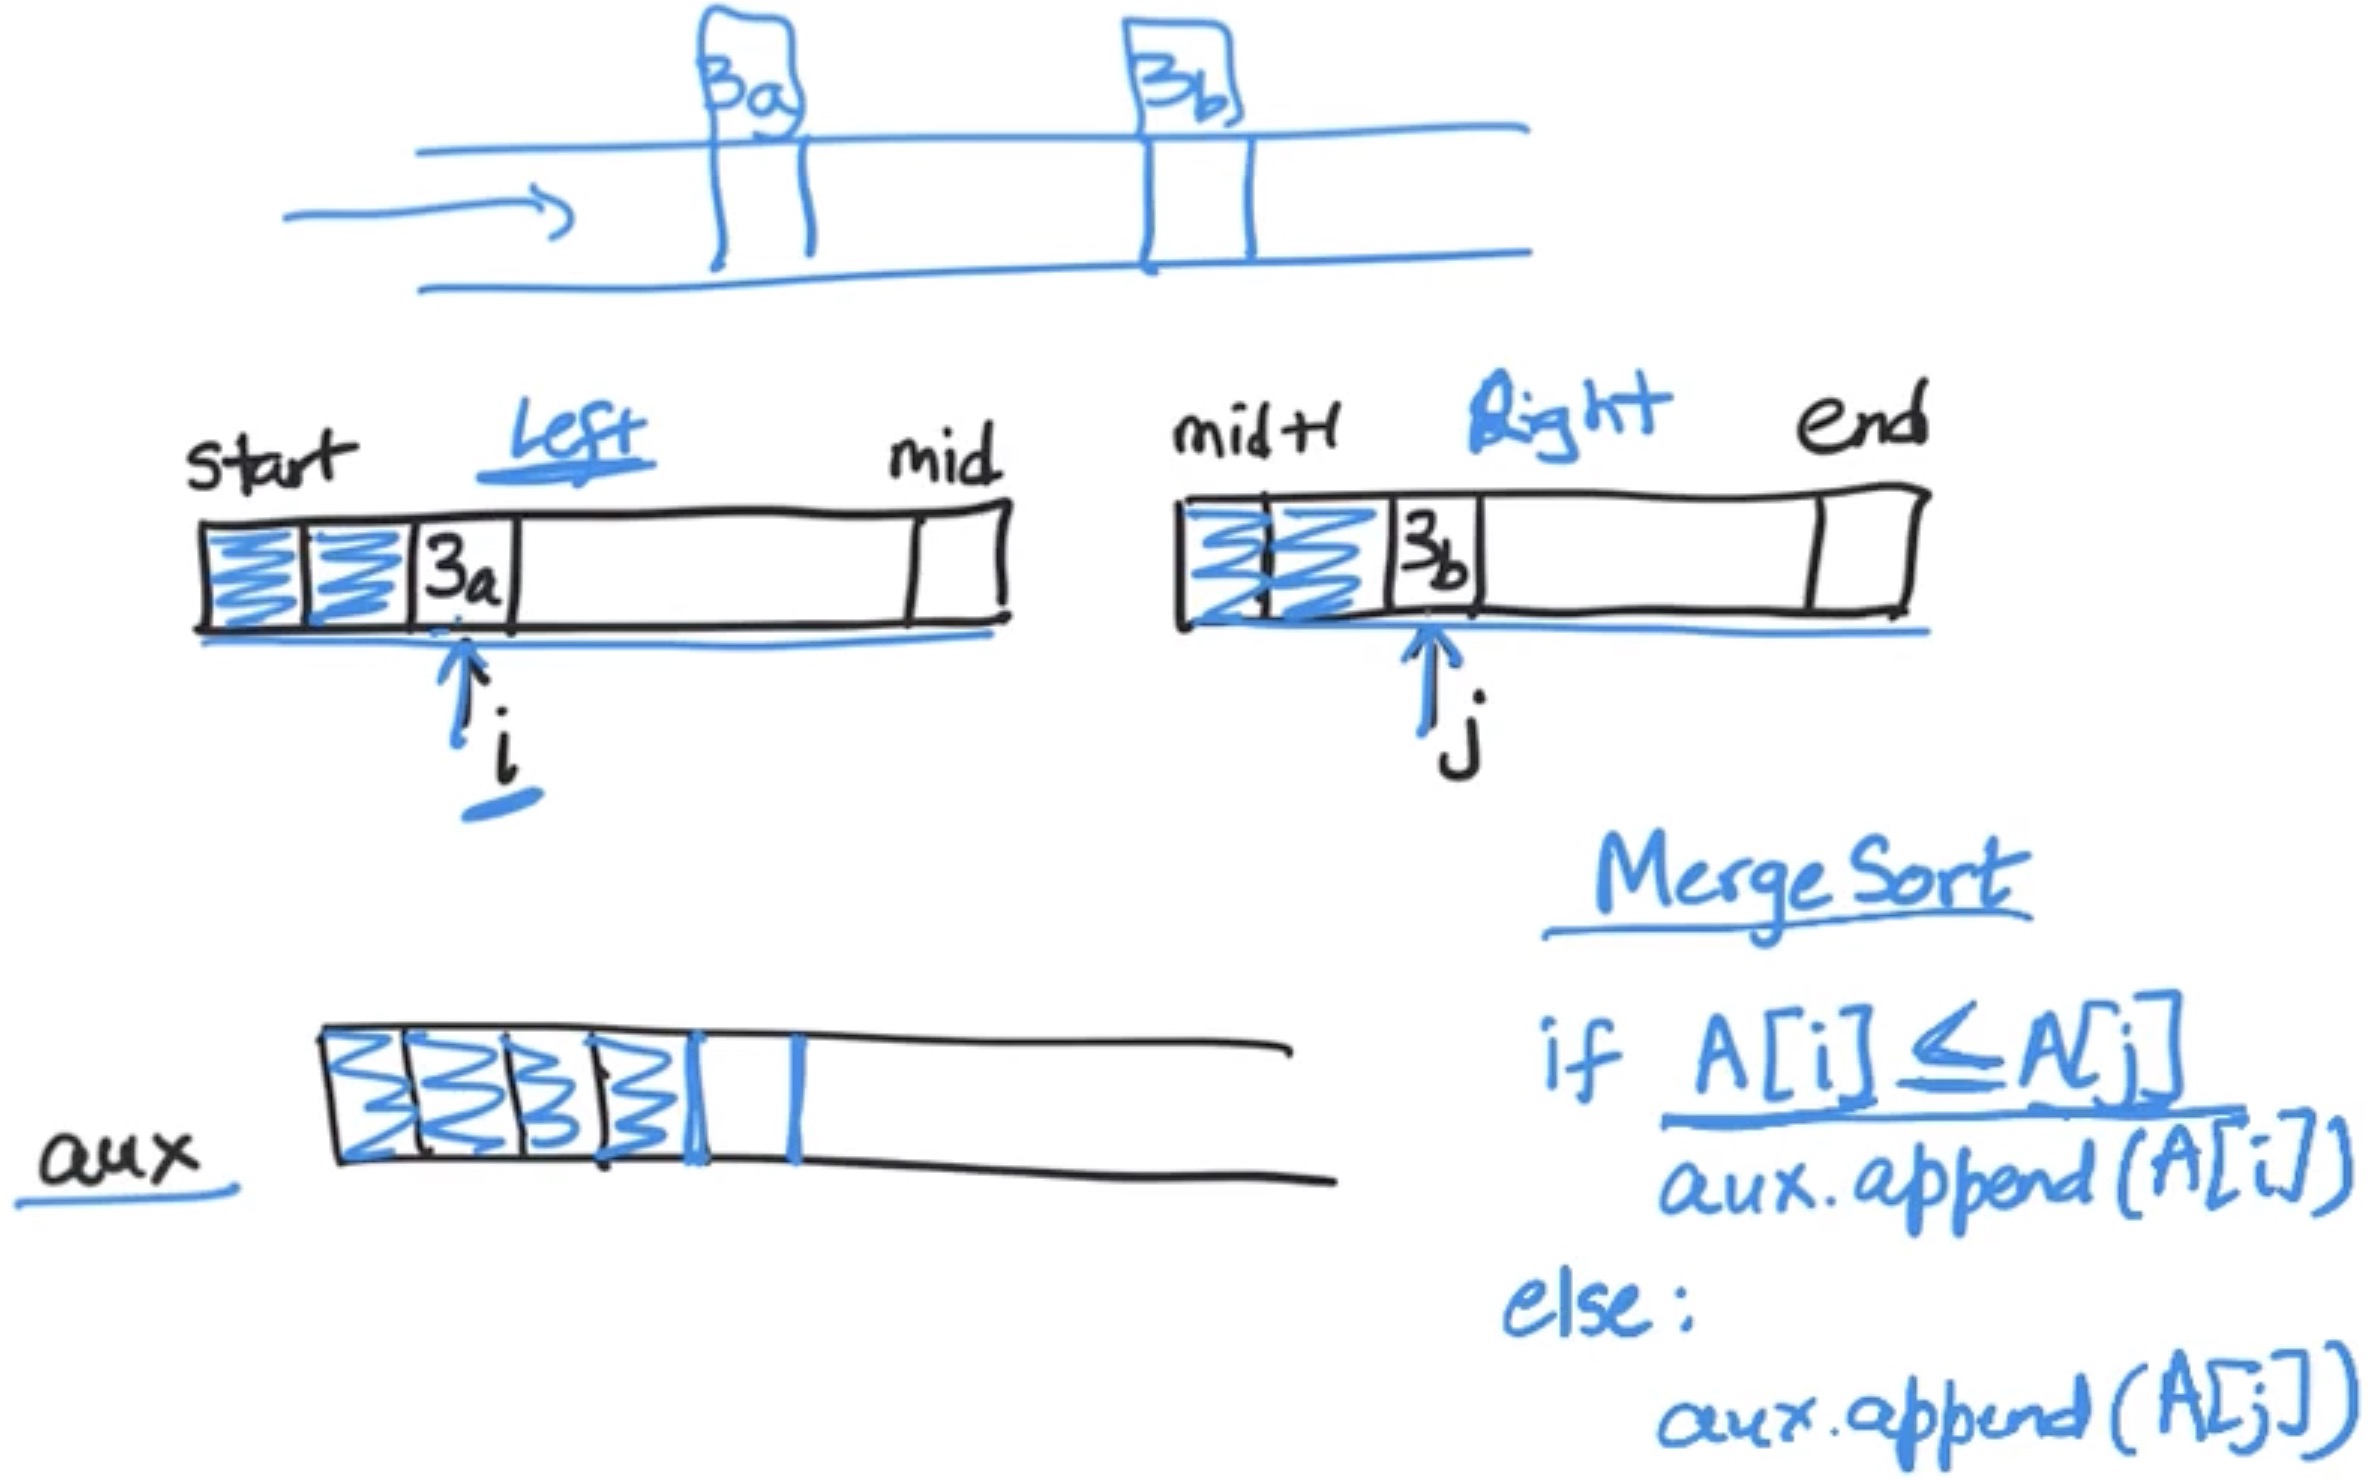 3a 3b
start Left mid mid+1 Right end
3a 3b
i j
MergeSort
if A[i] ≤ A[j]
aux aux.append(A[i])
else:
aux.append(A[j])